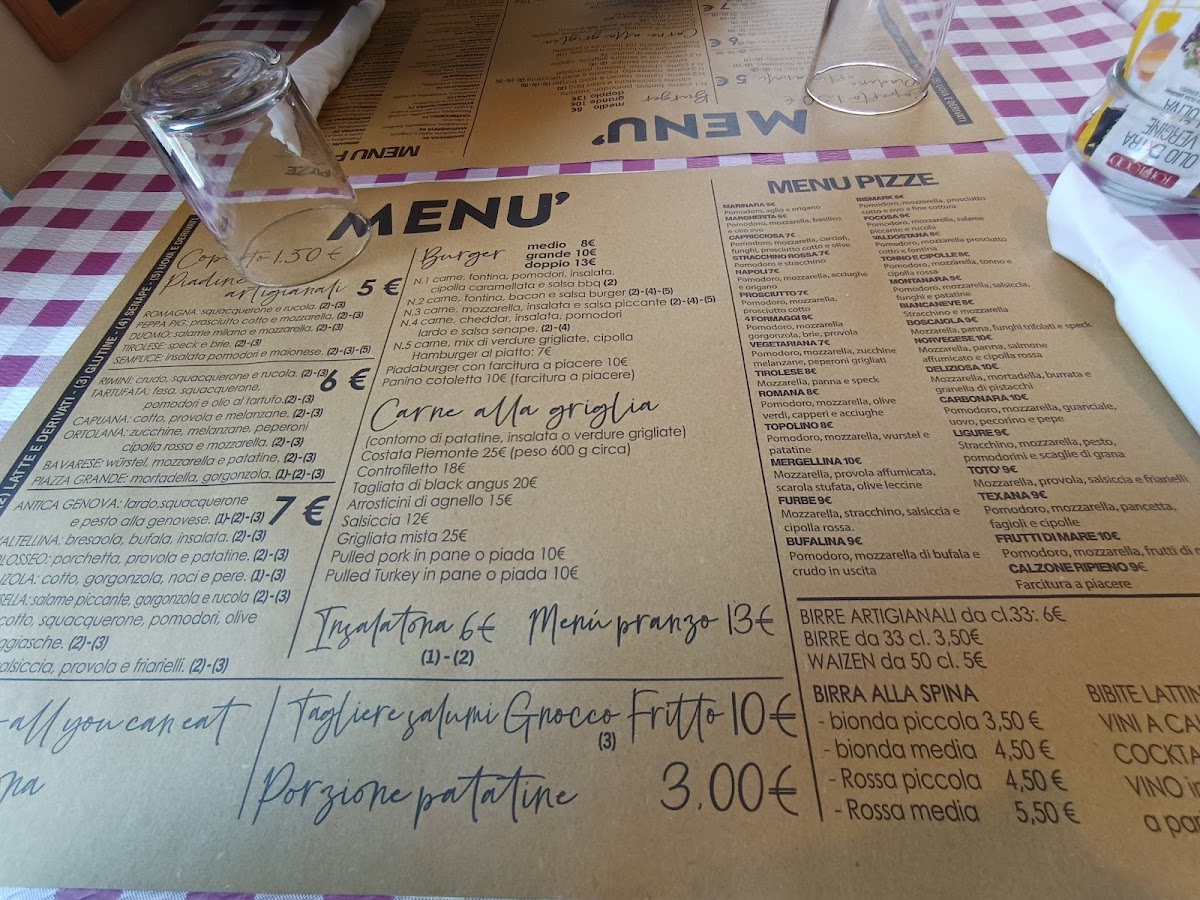 MENU'
Coperto 1.50 €
Piadine
artigianali 5 €
ROMAGNA: squacquerone e rucola. (2)-(3)
PEPPA PIG: prosciutto cotto e mozzarella. (2)-(3)
DUOMO: salame milano e mozzarella. (2)-(3)
TIROLESE: speck e brie. (2)-(3)
SEMPLICE: insalata pomodori e maionese. (2)-(3)-(5)
6 €
RIMINI: crudo, squacquerone e rucola. (2)-(3)
TARTUFATA: fesa, squacquerone,
pomodori e olio al tartufo.(2)-(3)
CAPUANA: cotto, provola e melanzane. (2)-(3)
ORTOLANA: zucchine, melanzane, peperoni
cipolla rossa e mozzarella. (2)-(3)
BAVARESE: würstel, mozzarella e patatine. (2)-(3)
PIAZZA GRANDE: mortadella, gorgonzola. (1)-(2)-(3)
7 €
ANTICA GENOVA: lardo,squacquerone
e pesto alla genovese. (1)-(2)-(3)
ALTELLINA: bresaola, bufala, insalata. (2)-(3)
OLOSSEO: porchetta, provola e patatine. (2)-(3)
cotto, gorgonzola, noci e pere. (1)-(3)
salame piccante, gorgonzola e rucola (2)-(3)
cotto, squacquerone, pomodori, olive
ggiasche. (2)-(3)
alsiccia, provola e friarielli. (2)-(3)
2) LATTE E DERIVATI - (3) GLUTINE - (4) SENAPE - (5) UOVA E DERIVATI
Burger
medio 8€
grande 10€
doppio 13€
N.1 carne, fontina, pomodori, insalata,
cipolla caramellata e salsa bbq (2)
N.2 carne, fontina, bacon e salsa burger (2)-(4)-(5)
N.3 carne, mozzarella, insalata e salsa piccante (2)-(4)-(5)
N.4 carne, cheddar, insalata, pomodori
lardo e salsa senape. (2)-(4)
N.5 carne, mix di verdure grigliate, cipolla
Hamburger al piatto: 7€
Piadaburger con farcitura a piacere 10€
Panino cotoletta 10€ (farcitura a piacere)
Carne alla griglia
(contorno di patatine, insalata o verdure grigliate)
Costata Piemonte 25€ (peso 600 g circa)
Controfiletto 18€
Tagliata di black angus 20€
Arrosticini di agnello 15€
Salsiccia 12€
Grigliata mista 25€
Pulled pork in pane o piada 10€
Pulled Turkey in pane o piada 10€
Insalatona 6€
(1)-(2)
Menú pranzo 13€
all you can eat
Tagliere salumi Gnocco Fritto 10€
(3)
Porzione patatine 3.00€
MENU PIZZE
MARINARA 5€
Pomodoro, aglio e origano
MARGHERITA 6€
Pomodoro, mozzarella, basilico
e olio evo
CAPRICCIOSA 7€
Pomodoro, mozzarella, carciofi,
funghi, prosciutto cotto e olive
STRACCHINO ROSSA 7€
Pomodoro e stracchino
NAPOLI 7€
Pomodoro, mozzarella, acciughe
e origano
PROSCIUTTO 7€
Pomodoro, mozzarella,
prosciutto cotto
4 FORMAGGI 8€
Pomodoro, mozzarella,
gorgonzola, brie, provola
VEGETARIANA 7€
Pomodoro, mozzarella, zucchine
melanzane, peperoni grigliati
TIROLESE 8€
Mozzarella, panna e speck
ROMANA 8€
Pomodoro, mozzarella, olive
verdi, capperi e acciughe
TOPOLINO 8€
Pomodoro, mozzarella, wurstel e
patatine
MERGELLINA 10€
Mozzarella, provola affumicata,
scarola stufata, olive leccine
FURBE 9€
Mozzarella, stracchino, salsiccia e
cipolla rossa.
BUFALINA 9€
Pomodoro, mozzarella di bufala e
crudo in uscita
BISMARK 8€
Pomodoro, mozzarella, prosciutto
cotto e ovo a fine cottura
FOCOSA 9€
Pomodoro, mozzarella, salame
piccante e rucola
VALDOSTANA 8€
Pomodoro, mozzarella prosciutto
cotto e fontina
TONNO E CIPOLLE 8€
Pomodoro, mozzarella, tonno e
cipolla rossa
MONTANARA 9€
Pomodoro, mozzarella, salsiccia,
funghi e patatine
BIANCANEVE 8€
Stracchino e mozzarella
BOSCAIOLA 9€
Mozzarella, panna, funghi trifolati e speck
NORVEGESE 10€
Mozzarella, panna, salmone
affumicato e cipolla rossa
DELIZIOSA 10€
Mozzarella, mortadella, burrata e
granella di pistacchi
CARBONARA 10€
Pomodoro, mozzarella, guanciale,
uovo, pecorino e pepe
LIGURE 9€
Stracchino, mozzarella, pesto,
pomodorini e scaglie di grana
TOTO' 9€
Mozzarella, provola, salsiccia e friarielli
TEXANA 9€
Pomodoro, mozzarella, pancetta,
fagioli e cipolle
FRUTTI DI MARE 10€
Pomodoro, mozzarella, frutti di
CALZONE RIPIENO 9€
Farcitura a piacere
BIRRE ARTIGIANALI da cl.33: 6€
BIRRE da 33 cl. 3,50€
WAIZEN da 50 cl. 5€
BIRRA ALLA SPINA
- bionda piccola 3,50 €
- bionda media 4,50 €
- Rossa piccola 4,50 €
- Rossa media 5,50 €
BIBITE LATTIN
VINI A CA
COCKTA
VINO in
a par
MENU'
Burger
medio 8€
grande 10€
doppio 13€
Carne alla griglia
OLIO EXTRA
VERGINE